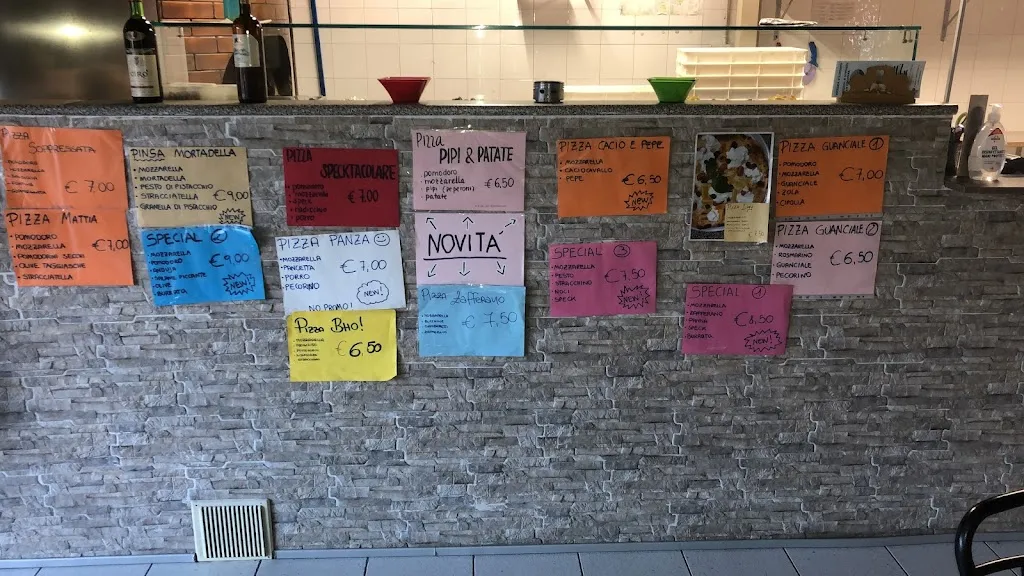 PIZZA
SOPRESSATA
€ 7,00
PIZZA MATTIA
• POMODORO
• MOZZARELLA
• POMODORINI SECCHI
• OLIVE TAGGIASCHE
• STRACCIATELLA
€ 7,00
PINSA MORTADELLA
• MOZZARELLA
• MORTADELLA
• PESTO DI PISTACCHIO
• STRACCIATELLA
• GRANELLA DI PISTACCHIO
€ 9,00
NEW!
SPECIAL 2
• MOZZARELLA
• POMODORO
• SALAME PICCANTE
• OLIVE
• BURRATA
€ 9,00
NEW!
PIZZA
SPECKTACOLARE
• POMODORO
• MOZZARELLA
• SPECK
• RADICCHIO
€ 7,00
PIZZA PANZA
• MOZZARELLA
• PANCETTA
• PORRO
• PECORINO
€ 7,00
NEW!
NO PROMO!
Pizza BHO!
€ 6,50
Pizza
PIPI & PATATE
pomodoro
• mozzarella
• pipi (peperoni)
• patate
€ 6,50
NOVITA'
Pizza Zafferano
€ 7,50
PIZZA CACIO E PEPE
• MOZZARELLA
• CACIOCAVALLO
• PEPE
€ 6,50
NEW!
SPECIAL 3
• MOZZARELLA
• PESTO
• STRACCHINO
• NOCI
• SPECK
€ 7,50
NEW!
SPECIAL 1
• MOZZARELLA
• ZAFFERANO
• PANNA
• SPECK
• BURRATA
€ 8,50
NEW!
PIZZA GUANCIALE 1
• POMODORO
• MOZZARELLA
• GUANCIALE
• ZOLA
• CIPOLLA
€ 7,00
PIZZA GUANCIALE 2
• MOZZARELLA
• ROSMARINO
• GUANCIALE
PECORINO
€ 6,50